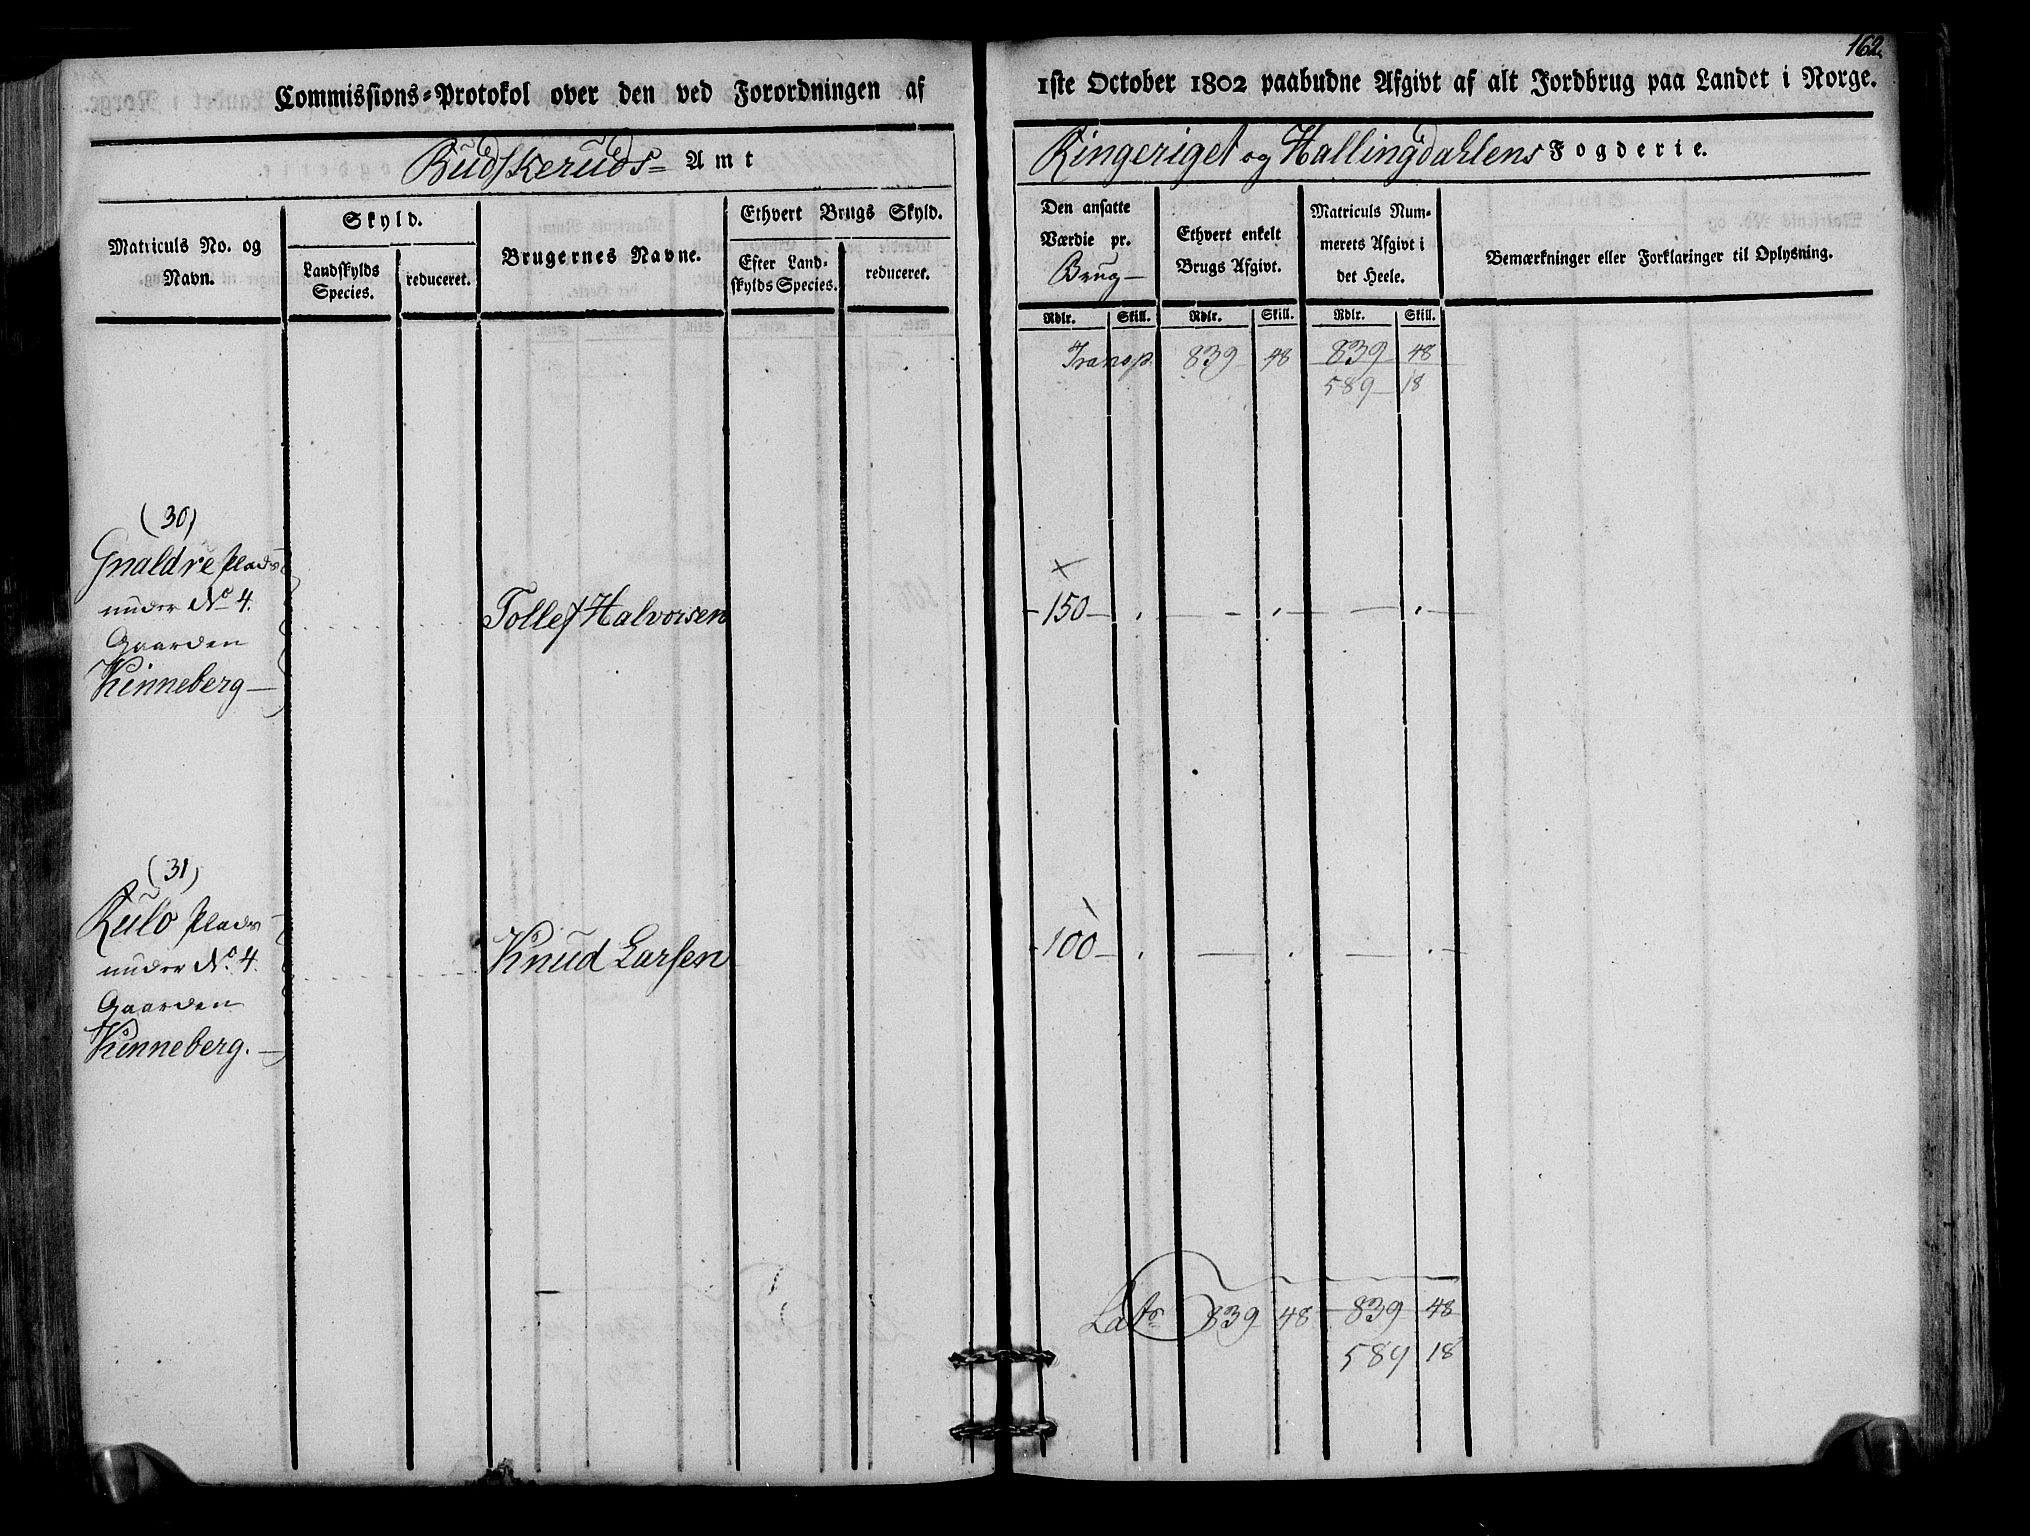 162.
Commissions-Protokol over den ved Forordningen af 1ste October 1802 paabudne Afgivt af alt Jordbrug paa Landet i Norge.
Budskeruds Amt
Ringeriget og Hallingdahlens Fogderie.
Matriculs No. og Navn.
Skyld.
Landskylds Species.
reduceret.
Brugernes Navne.
Ethvert Brugs Skyld.
Efter Landskylds Species.
reduceret.
Den ansatte Værdie pr. Brug
Ethvert enkelt Brugs Afgivt.
Matriculs Nummerets Afgivt i det Heele.
Bemærkninger eller Forklaringer til Oplysning.
Rdlr. Skill. Rdlr. Skill. Rdlr. Skill.
Transp. 839 48 839 48
589 18
(30)
Gnaldre Plads
under No 4.
Gaarden
Kinneberg
Tollef Halvorsen 150
(31)
Rulo Plads
under No. 4.
Gaarden
Kinneberg.
Knud Larsen 100
Lats 839 48 839 48
589 18